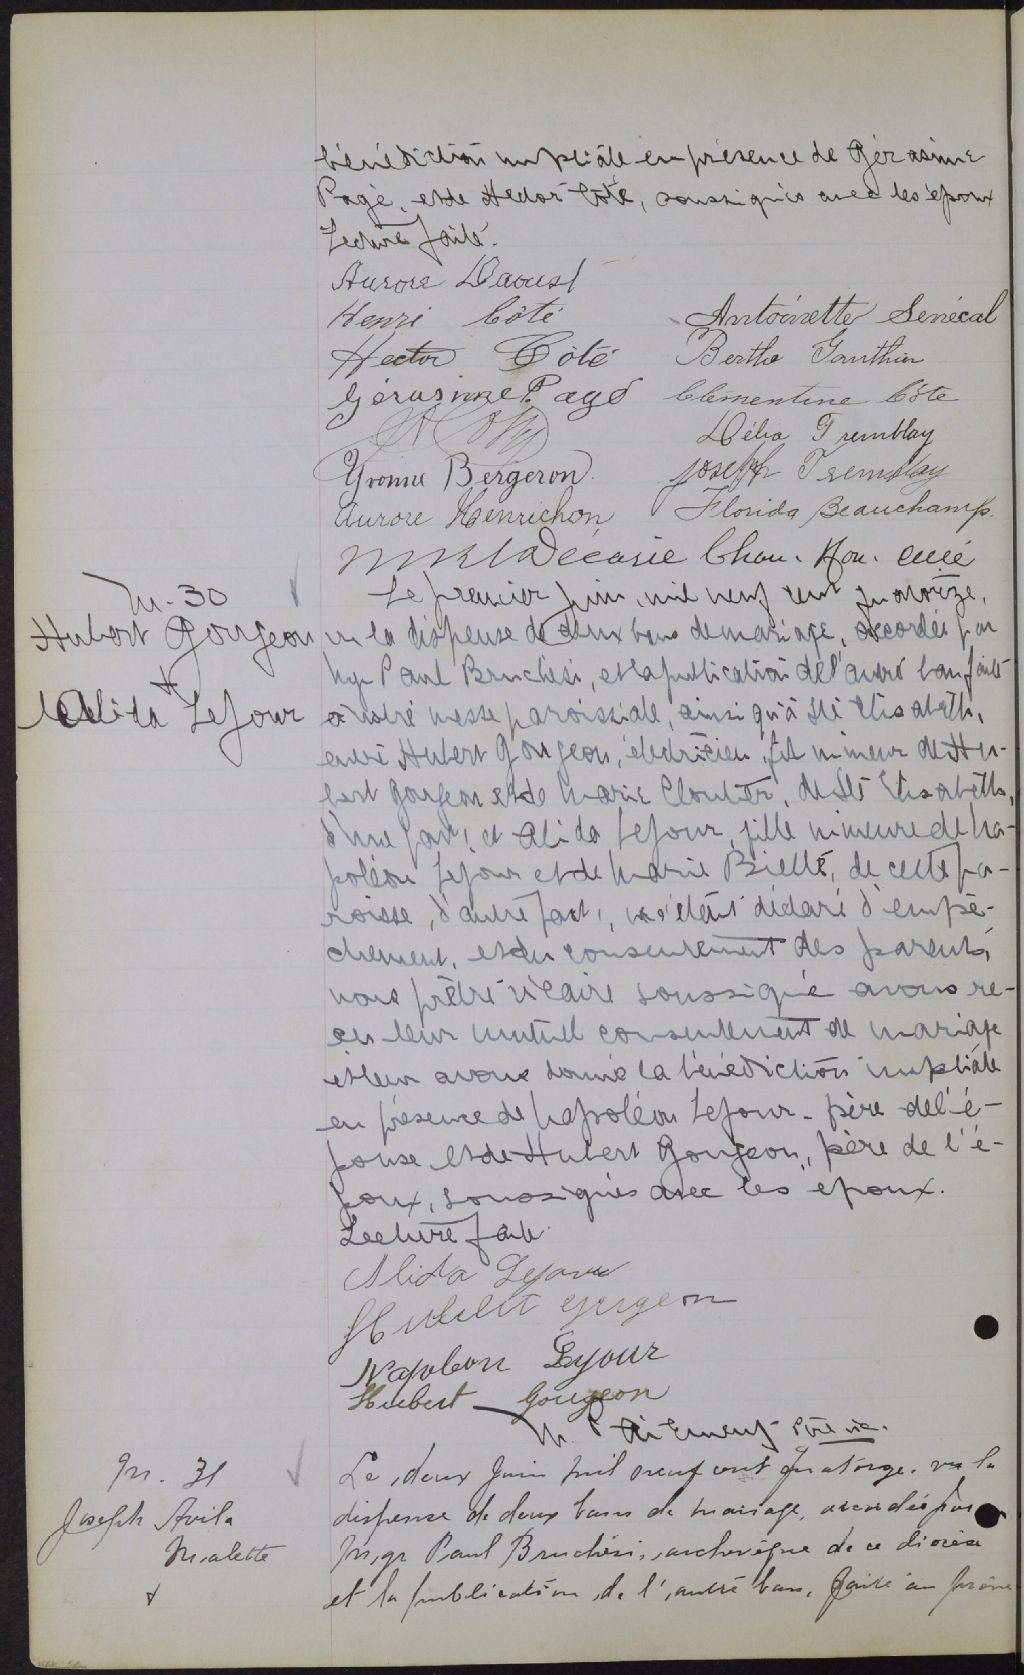 bénédiction nuptiale en présence de Gérasime
Pagé, et de Hector Côté, soussignés avec les époux
Lecture faite.
Aurore Daoust
Henri Côté Antoinette Senécal
Hector Côté Berthe Gauthier
Gérasime Pagé Clémentine Côté
Délia Tremblay
Yvonne Bergeron Joseph Tremblay
Aurore Henrichon Florida Beauchamp
Décarie Chan. Hon. curé
M. 30
Hubert Gougeon
+
Alida Lejour
Le premier juin, mil neuf cent quatorze,
vu la dispense de deux bans de mariage, accordée par
Mgr Paul Bruchési, et la publication de l'autre ban faite
à notre messe paroissiale, ainsi qu'à Ste Elisabeth,
entre Hubert Gougeon, électricien, fils mineur de Hu-
bert Gougeon et de Marie Cloutier, de Ste Elisabeth,
d'une part, et Alida Lejour, fille mineure de Na-
poléon Lejour et de Marie Brielle, de cette pa-
roisse, d'autre part, ne s'étant déclaré d'empê-
chement, et du consentement des parents,
nous prêtre vicaire soussigné avons re-
çu leur mutuel consentement de mariage
et leur avons donné la bénédiction nuptiale
en présence de Napoléon Lejour père de l'é-
pouse et de Hubert Gougeon, père de l'é-
poux, soussignés avec les époux.
Lecture faite.
Alida Lejour
Hubert Gougeon
Napoleon Lejour
Hubert Gougeon
Ptre vic.
M. 31
Joseph Avila
Malette
+
Le deux Juin mil neuf cent quatorze, vu la
dispense de deux bans de mariage, accordée par
Mgr Paul Bruchési, archevêque de ce diocèse
et la publication de l'autre ban, faite au prône